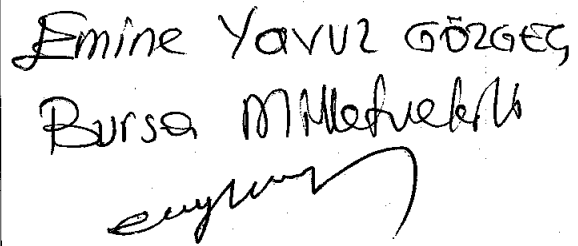 Emine Yavuz GÖZGEÇ
Bursa Milletvekili